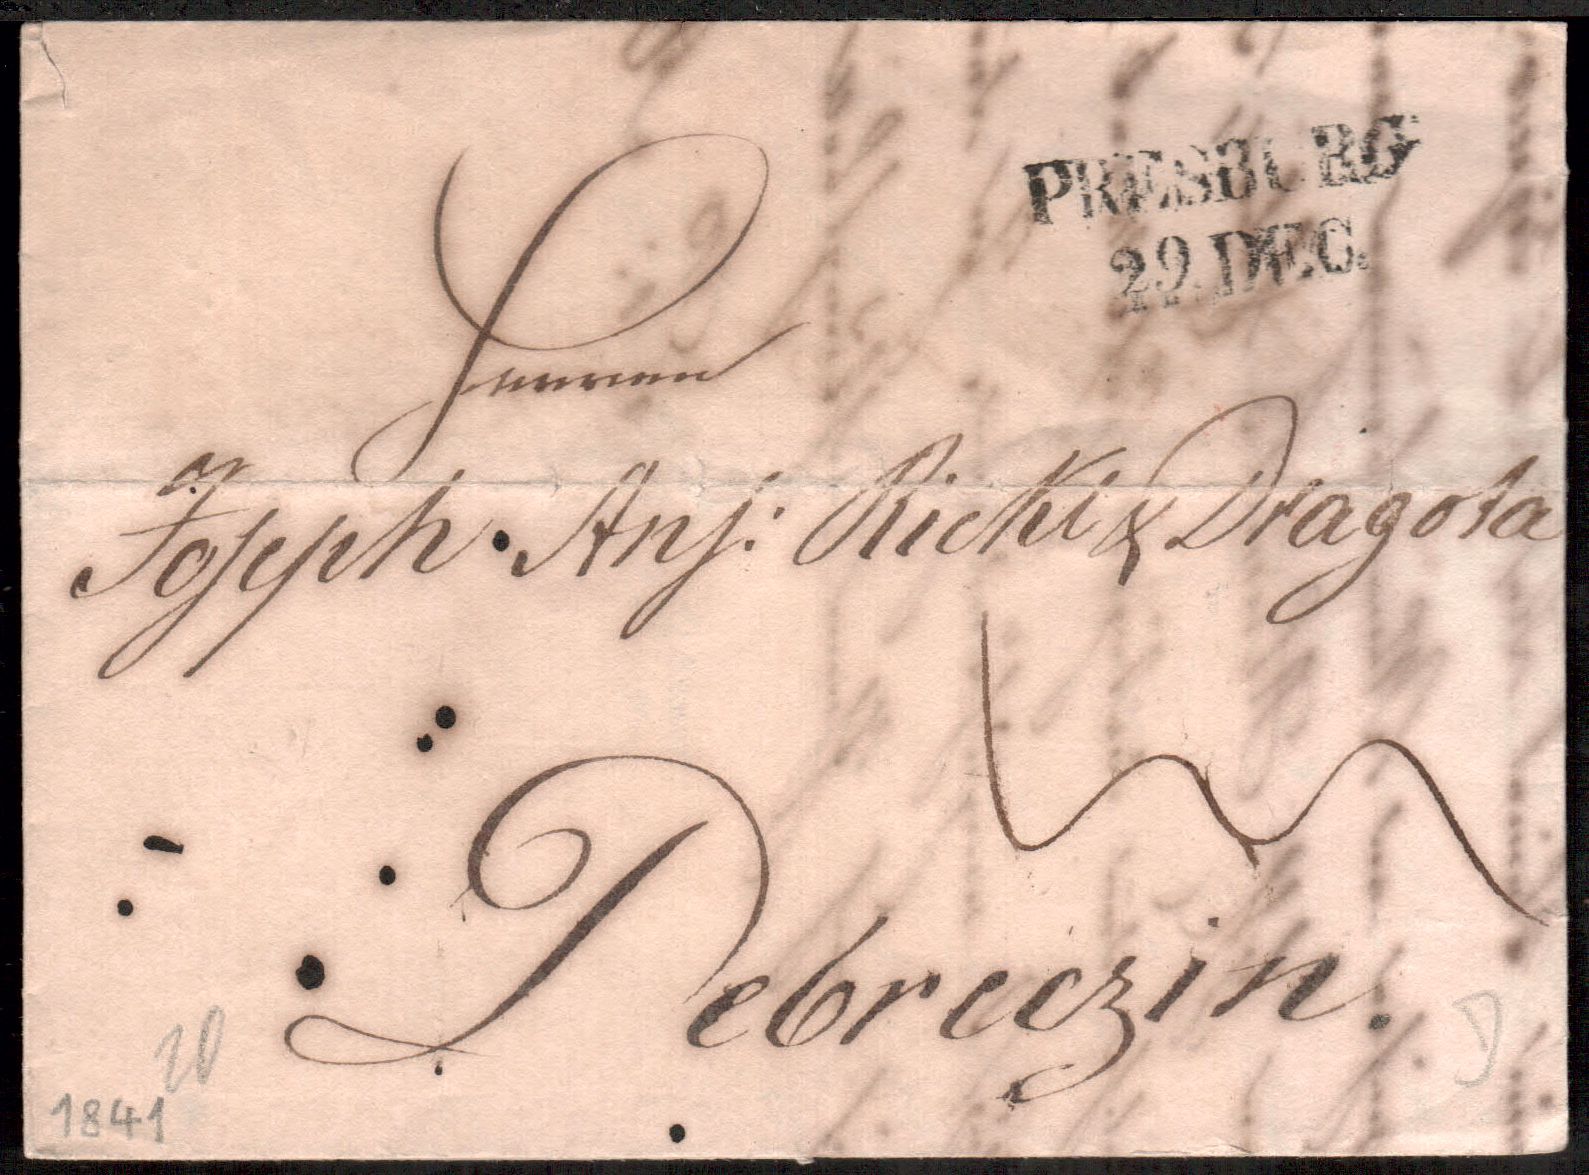 PRESBURG
29. DEC.
Herren
Joseph Ant: Rickl & Dragota
Debreczin.
10
1841